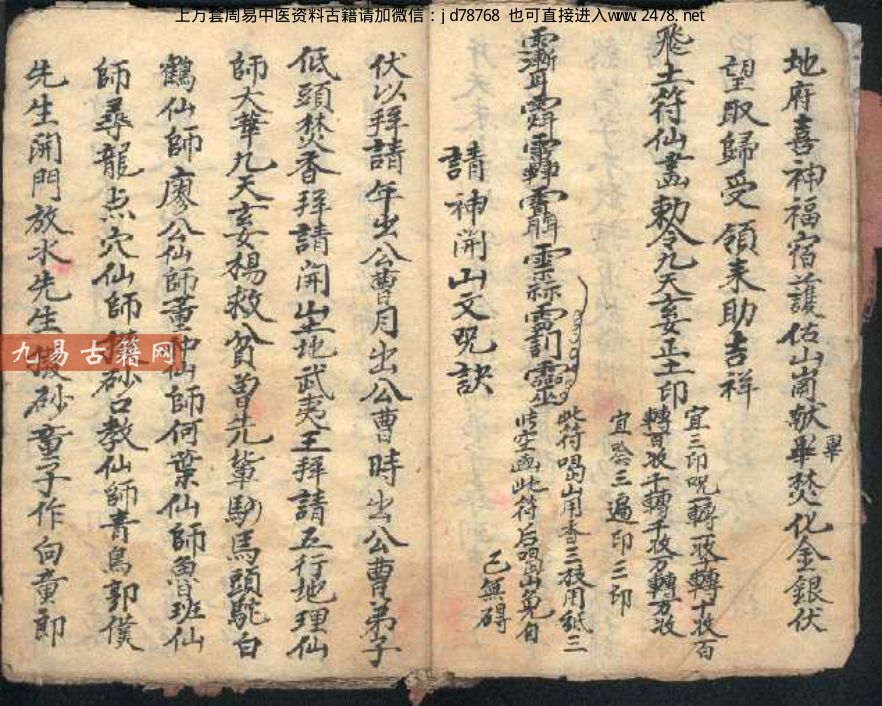 上万套周易中医资料古籍请加微信：jd78768 也可直接进入www.2478.net
地府喜神福宿護佑山崗献畢焚化金銀伏
畢
望取歸受領来助吉祥
宜三印呪一轉一收十轉十收百
轉百收千轉千收万轉万收
飛土符仙書勅令九天玄女正土印
宜唸三遍印三印
此符喝山用香三枝用紙三
此符后喝山免自
己無碍
請神開山文呪訣
伏以拜請年出公曹月出公曹時出公曹弟子
低頭焚香拜請開山土地武夷王拜請五行地理仙
師大華九天玄女楊救貧曾先輩駙馬頭駝白
鶴仙師廖公仙師董仲仙師何葉仙師魯班仙
師尋龍点穴仙師撥砂口教仙師青烏郭僕
先生開門放水先生撥砂童子作向童郎
九易古籍网